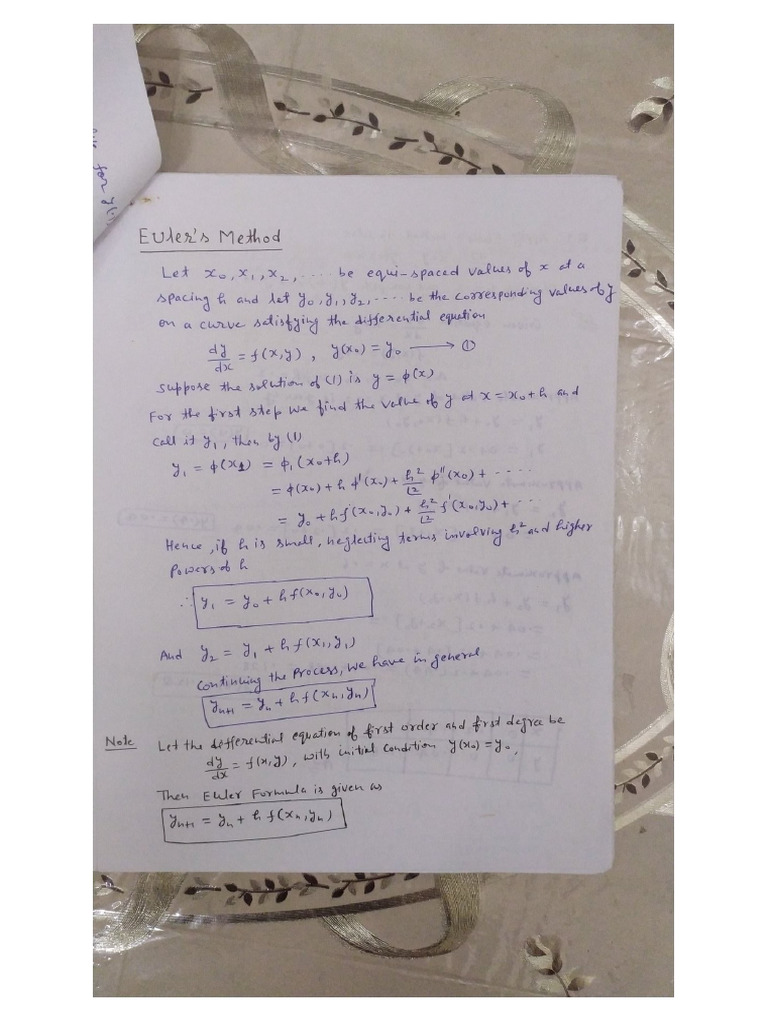 for y(.)
Euler's Method
Let x₀, x₁, x₂, ---- be equi-spaced values of x at a
spacing h and let y₀, y₁, y₂, ---- be the corresponding values of y
on a curve satisfying the differential equation
dy/dx = f(x,y) , y(x₀) = y₀ ⟶ ①
Suppose the solution of (1) is y = ϕ(x)
For the first step we find the value of y at x = x₀+h and
call it y₁, then by (1)
y₁ = ϕ(x₁) = ϕ₁(x₀+h)
= ϕ(x₀) + h ϕ'(x₀) + h²/⌊2 ϕ''(x₀) + -----
= y₀ + hf(x₀,y₀) + h²/⌊2 f'(x₀,y₀) + ----
Hence, if h is small, neglecting terms involving h² and higher
powers of h
∴ y₁ = y₀ + h f(x₀,y₀)
And y₂ = y₁ + h f(x₁,y₁)
Continuing the Process, we have in general
yₙ₊₁ = yₙ + h f(xₙ,yₙ)
Note Let the differential equation of first order and first degree be
dy/dx = f(x,y), with initial condition y(x₀) = y₀,
Then Euler Formula is given as
yₙ₊₁ = yₙ + h f(xₙ,yₙ)